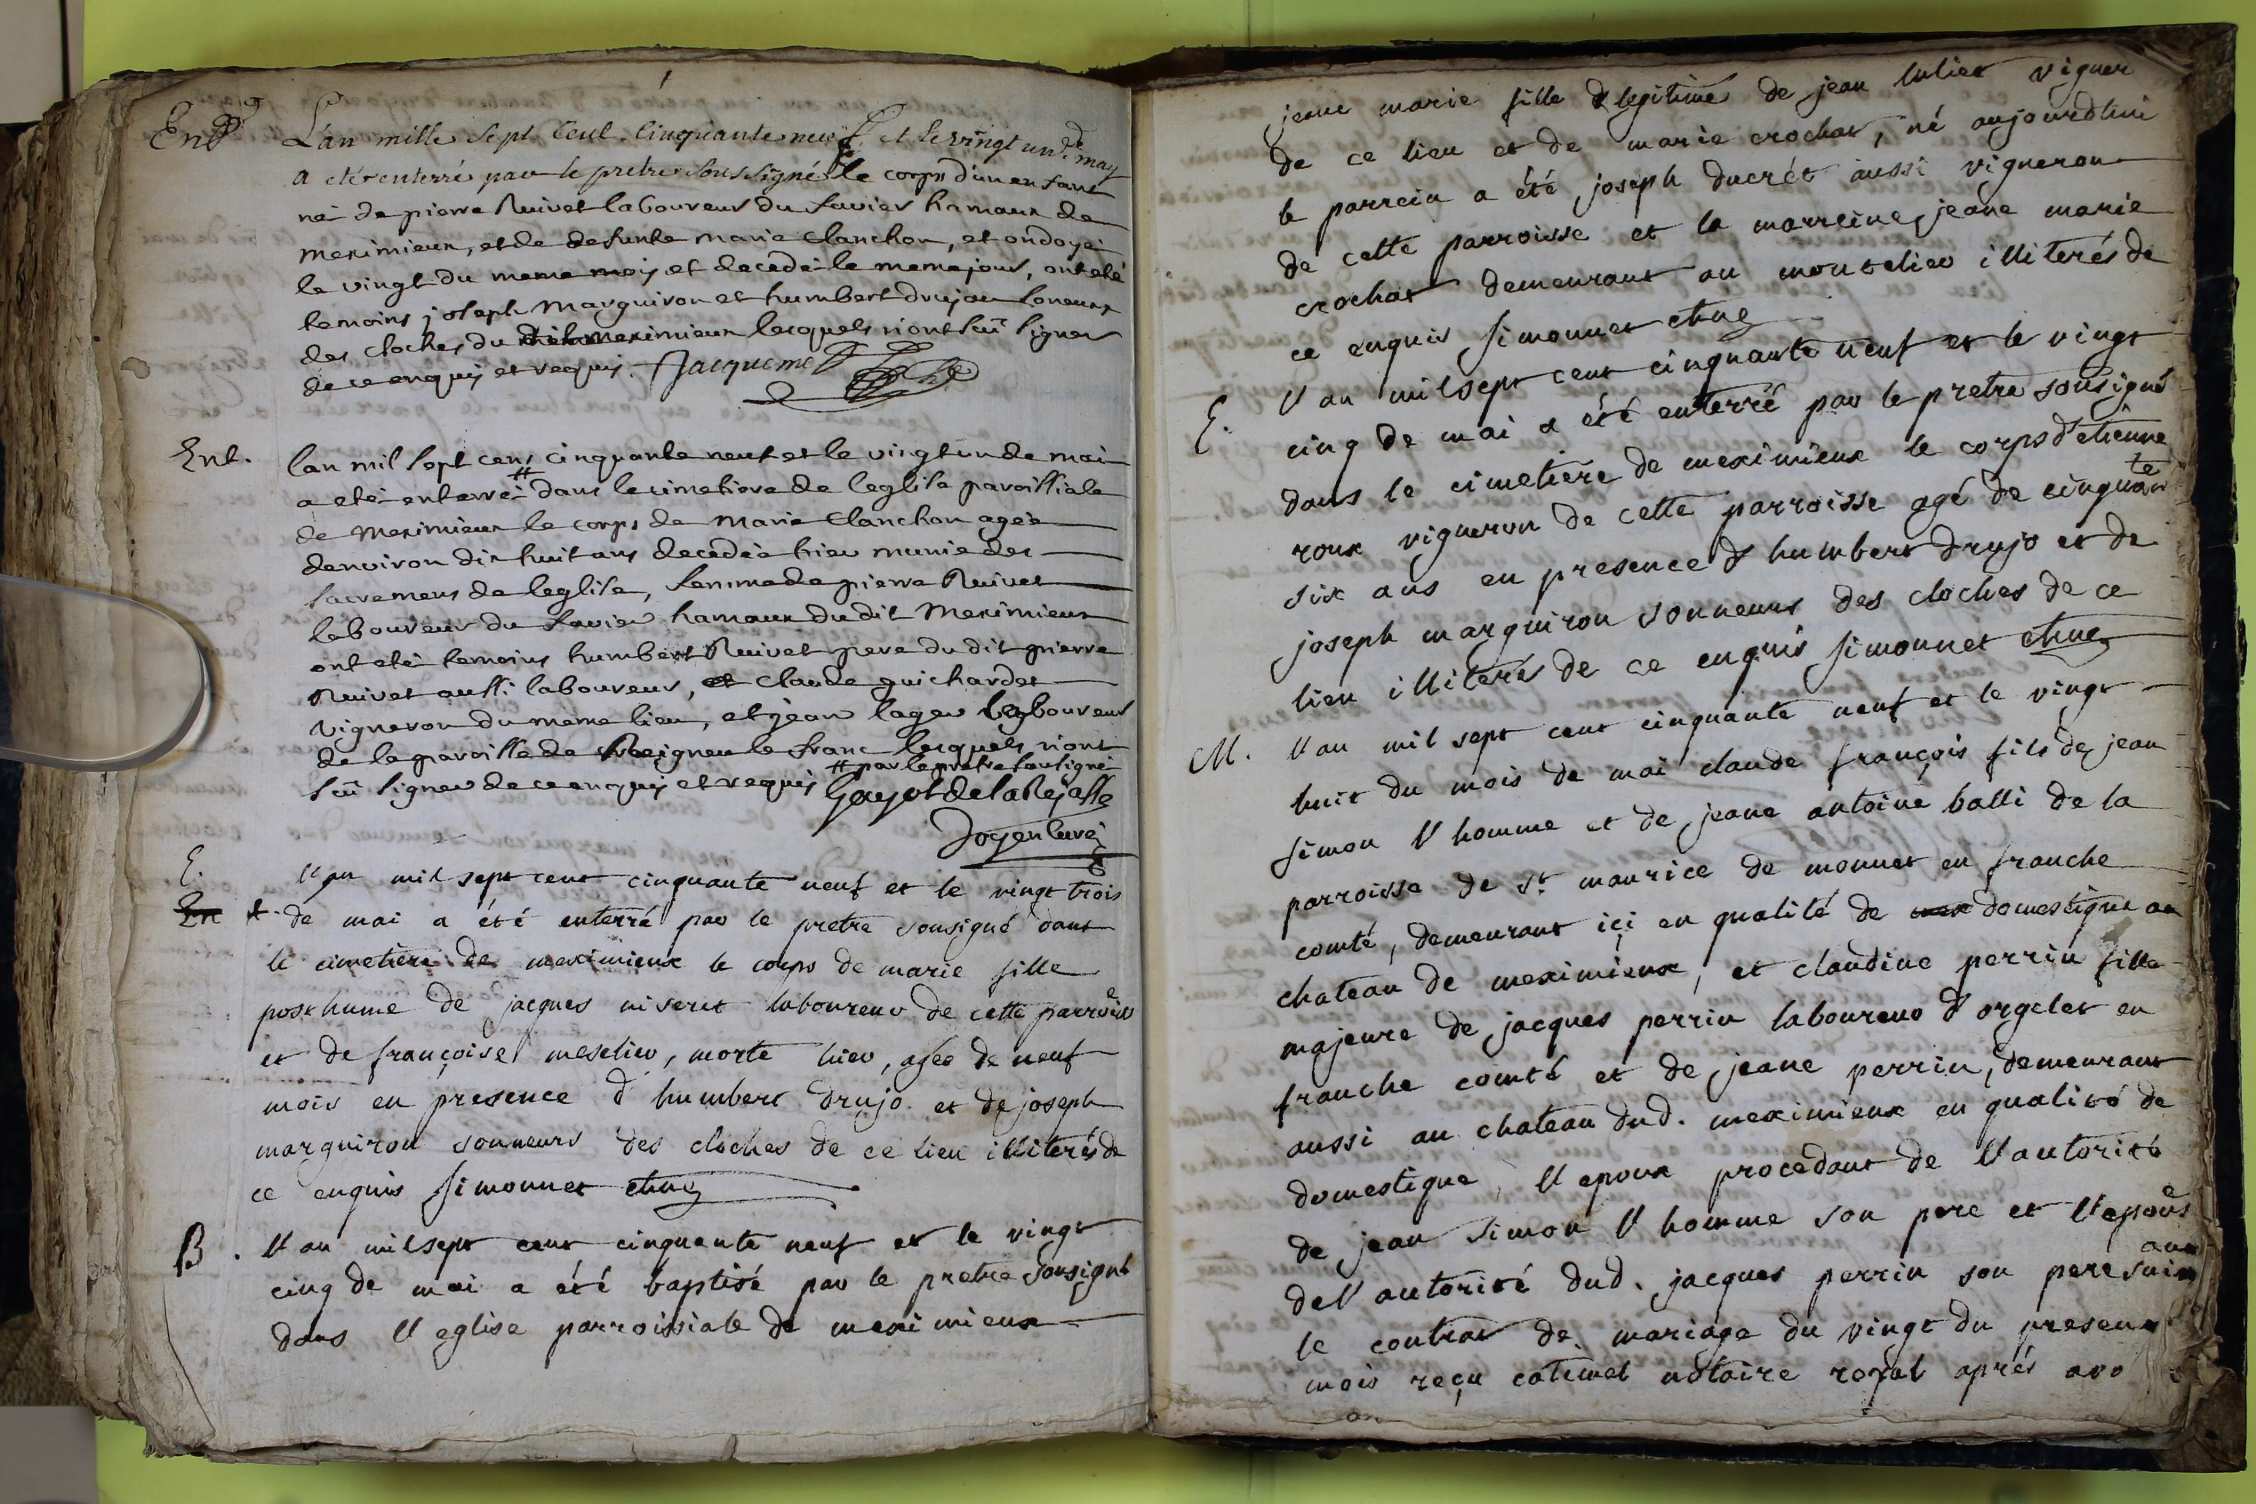 L'an mille sept Cent Cinquante neuf et le vingt un de may
a eté enterré par le pretre soussigné le corps d'un enfant
né de pierre Ruivet laboureur du favier hamaux de
meximieux, et de defunte marie Clanchon, et ondoyé
le vingt du meme mois et decedé le meme jour, ont eté
temoins joseph marguiron et humbert drujou soneurs
des cloches du meximieux lesquels n'ont sçu signer
de ce enquis et requis. Jacquemet
Ent.
lan mil sept cens cinquante neuf et le vingt un de mai
a eté enterré # dans le cimetiere de leglise paroissiale
de meximieux le corps de marie Clanchon agée
denviron dix huit ans decedée hier munie des
sacremens de leglise, femme de pierre Ruivet
laboureur du favier hamaux du dit meximieux
ont eté temoins humbert Ruivet pere du dit pierre
Ruivet aussi laboureur, et claude guichardet
vigneron du même lieu, et jean lager laboureur
de la paroisse de le franc lesquels n'ont
# par le pretre sousigné
sçu signer de ce enquis et requis Gayot de la Rejasse
Doyen curé
E.
l'an mil sept cent cinquante neuf et le vingt trois
En de mai a été enterré par le pretre sousigné dans
le cimetiere de meximieux le corps de marie fille
posthume de jacques niseret laboureur de cette parroisse
et de françoise meselier, morte hier, agée de neuf
mois en presence d'humbert drujo et de joseph
marguiron sonneurs des cloches de ce lieu illiterés de
ce enquis simonnet
B. l'an mil sept cent cinquante neuf et le vingt
cinq de mai a été baptisé par le pretre sousigné
dans l'eglise parroissiale de meximieux
jeane marie fille legitime de jean vigner
de ce lieu et de marie crochat, né aujourdhui
le parrein a été joseph ducrét aussi vigneron
de cette parroisse et la marreine jeane marie
crochat demeurant au montelier illiterés de
ce enquis simonnet
E. l'an mil sept cent cinquante neuf et le vingt
cinq de mai a été enterré par le pretre sousigné
dans le cimetiere de meximieux le corps d'etienne
roux vigneron de cette parroisse agé de cinquante
six ans en presence d'humbert drujo et de
joseph marguiron sonneurs des cloches de ce
lieu illiterés de ce enquis simonnet
M. l'an mil sept cent cinquante neuf et le vingt
huit du mois de mai claude françois fils de jean
simon l'homme et de jeane antoine balli de la
parroisse de st maurice de monnet en franche
comté, demeurant içi en qualité de domestique au
chateau de meximieux, et claudine perrin fille
majeure de jacques perrin laboureur d'orgelet en
franche comté et de jeane perrin, demeurant
aussi au chateau dud. meximieux en qualité de
domestique, l'epoux procedant de l'autorité
de jean simon l'homme son pere et l'epouse
de l'autorité dud. jacques perrin son pere suivant
le contrat de mariage du vingt du present
mois reçu catimel notaire royal aprés avo